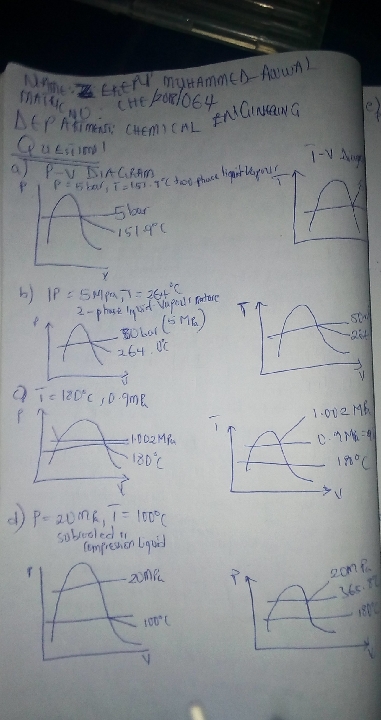 NAME: MUHAMMED AUWAL
MATRIC NO: CHE/2018/064
DEPARTMENT: CHEMICAL ENGINEERING
QUESTION 1
a) P-V DIAGRAM
T-V
P = 5 bar, T = 151.9°C two phase liquid vapour
P
5 bar
151.9°C
T
b) P = 5 MPa, T = 264°C
2-phase liquid vapour mixture
P
50 bar (5 MPa)
264.0°C
V
T
V
c) T = 180°C, 0.9 MPa
P
1.002 MPa
180°C
V
T
1.002 MPa
0.9 MPa
180°C
V
d) P = 20 MPa, T = 100°C
subcooled
compression liquid
P
20 MPa
100°C
V
P
20 MPa
V